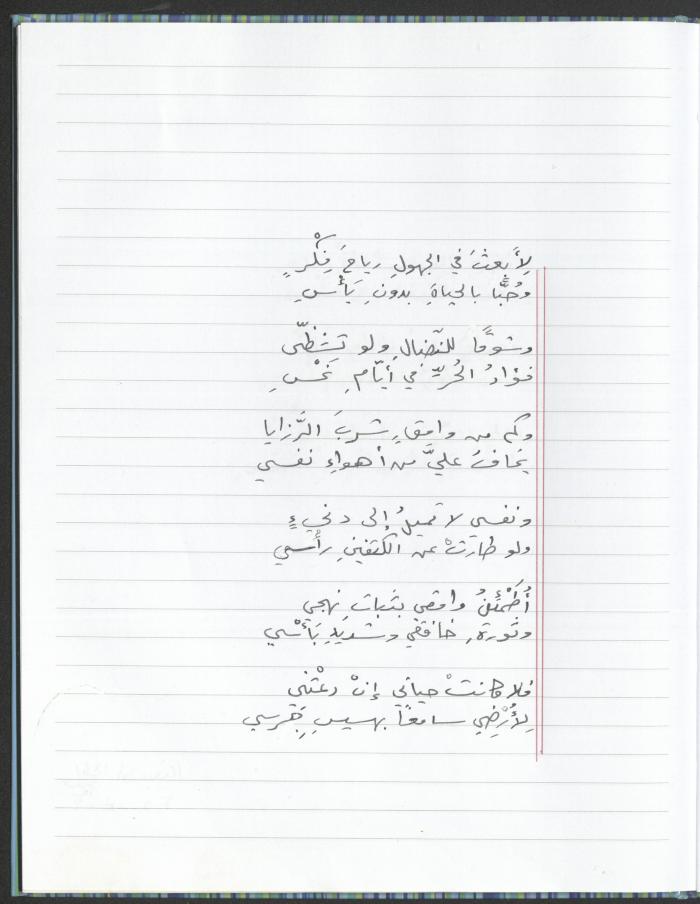 لِأَبعثَ في الجهولِ رياحَ فِكْرٍ
وحُبًّا بالحياةِ بدونِ يَأْسِ
وشوقًا للنّضالِ ولو تَشظّى
فؤادُ الحُرِّ في أيّامِ نَحْسِ
وكم من وامقٍ شربَ الرَّزايا
يخافُ عليَّ من أهواءِ نفسي
ونفسي لا تميلُ إلى دنيءٍ
ولو طارتْ عن الكتفينِ رأسي
أُطَمْئِنُ وامقي بثباتِ نهجي
وثورةِ خافقي وشديدِ بَأْسي
فلا كانتْ حياتي إنْ دعْتني
لِأُرْضِي سامعًا بهسيسِ جَرسي